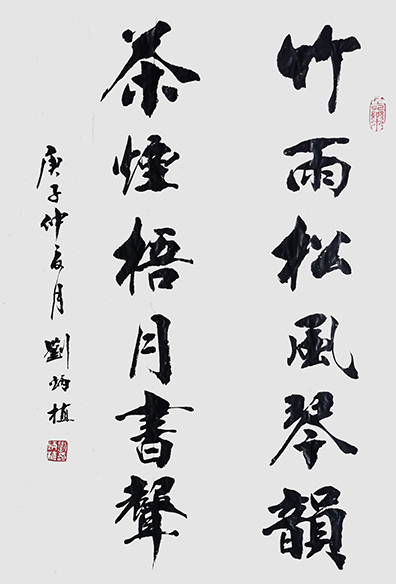 竹雨松風琴韻
茶煙梧月書聲
庚子仲夏月劉炳植